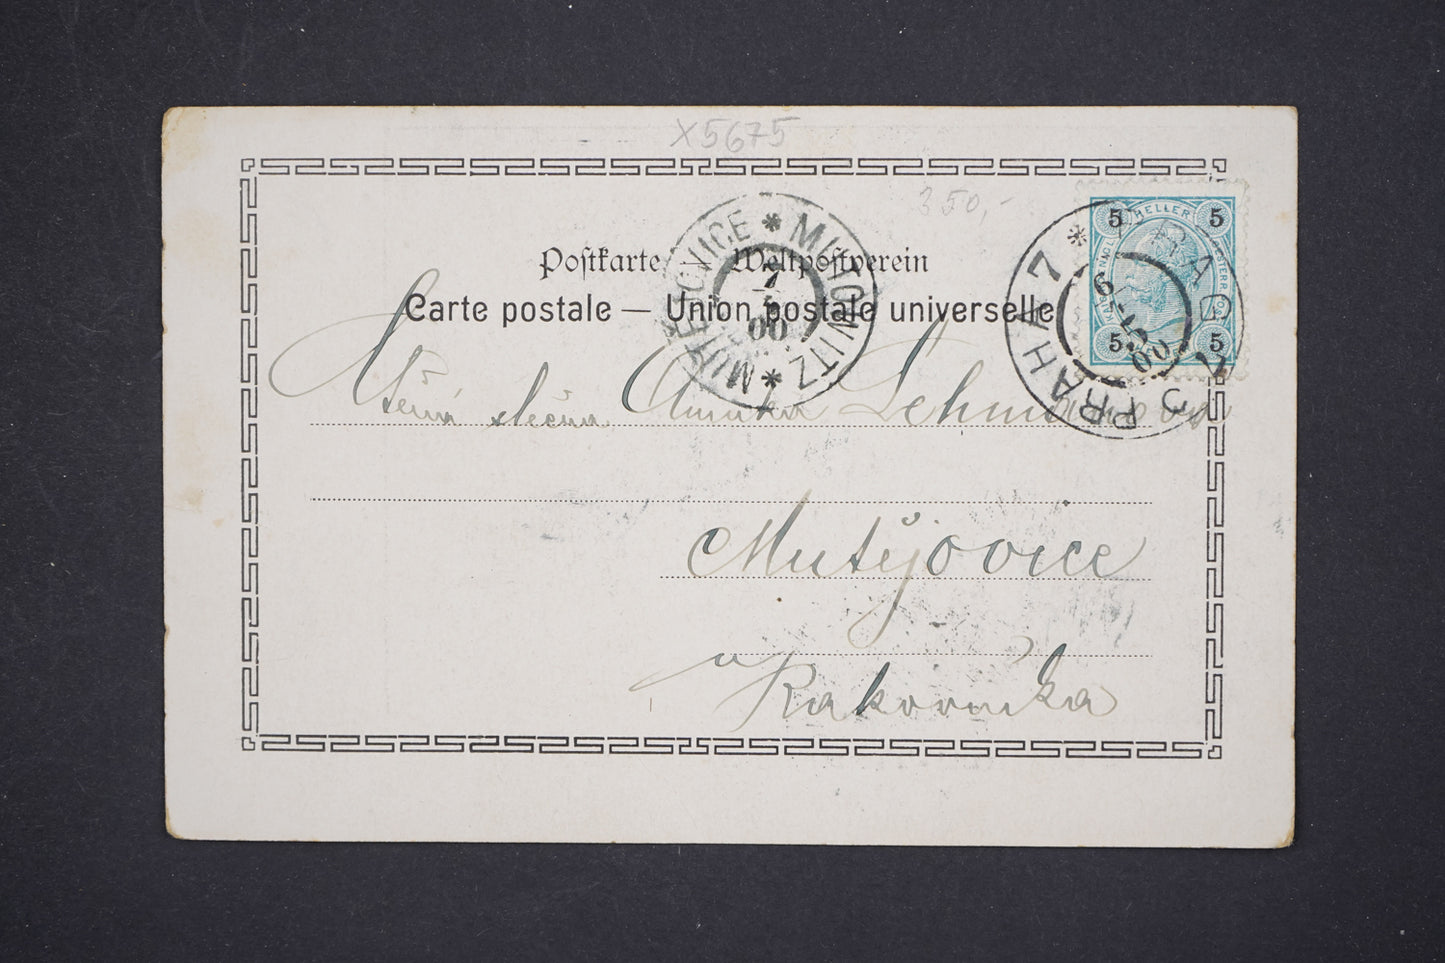 X5675
350,-
Postkarte — Weltpostverein
Carte postale — Union postale universelle
MUTĚJOVICE * MUTIOWITZ *
7
5
00
PRAHA 7 * PRAG 7
6
5
00
5 HELLER 5
5 5
Ctěná slečna Aninka Lehmanova
Mutějovice
u Rakovníka